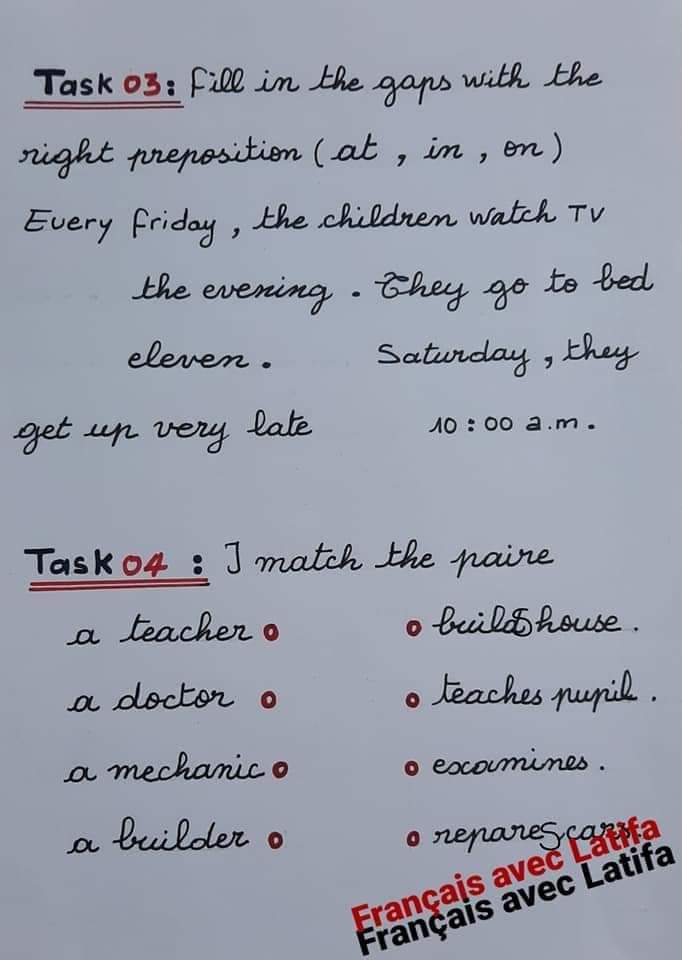 Task 03: Fill in the gaps with the
right preposition (at, in, on)
Every friday, the children watch TV
the evening. They go to bed
eleven. Saturday, they
get up very late 10:00 a.m.
Task 04: I match the paire
a teacher builds house.
a doctor teaches pupil.
a mechanic examines.
a builder repares cars.
Français avec Latifa
Français avec Latifa